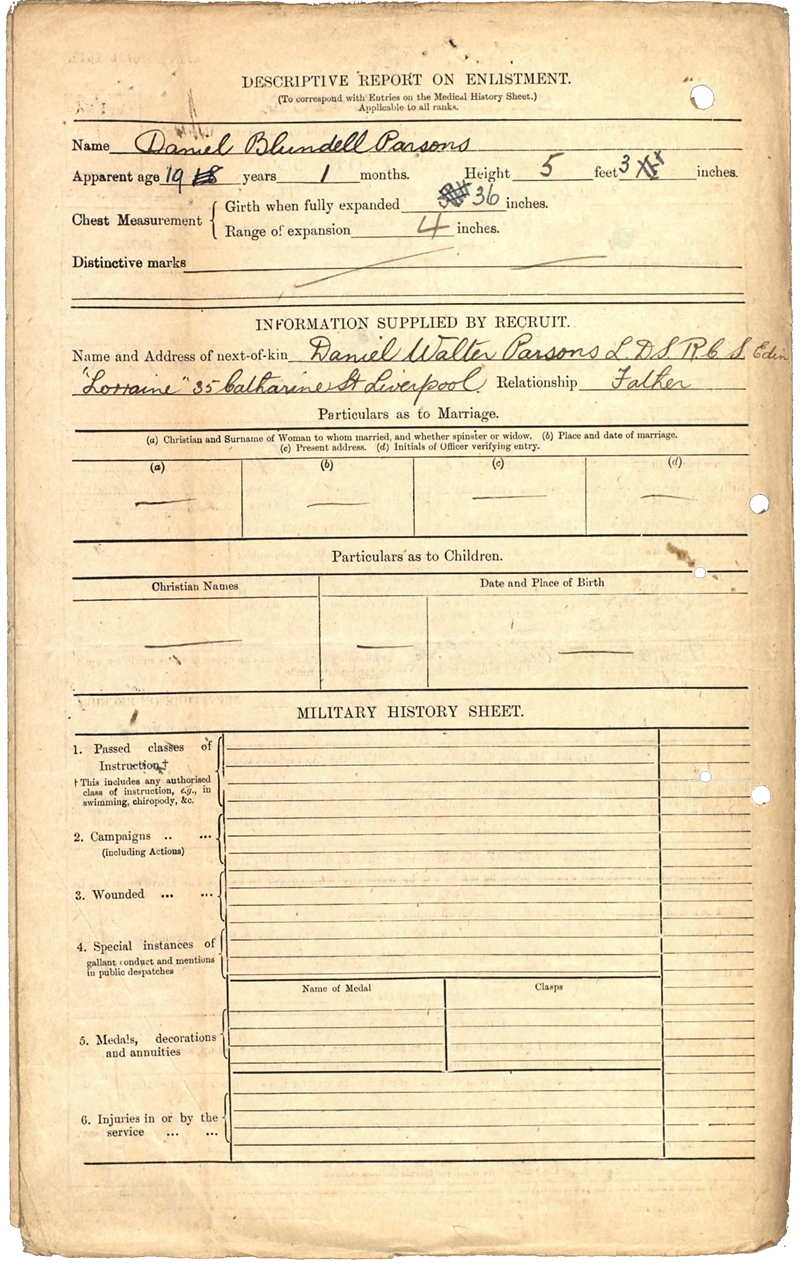 DESCRIPTIVE REPORT ON ENLISTMENT.
(To correspond with Entries on the Medical History Sheet.)
Applicable to all ranks.
Name Daniel Blundell Parsons
Apparent age 19 years 1 months. Height 5 feet 3 inches.
Chest Measurement { Girth when fully expanded 36 inches.
Range of expansion 4 inches.
Distinctive marks
INFORMATION SUPPLIED BY RECRUIT.
Name and Address of next-of-kin Daniel Walter Parsons L.D.S. R.C.S. Edin
"Lorraine" 35 Catharine St Liverpool. Relationship Father
Particulars as to Marriage.
(a) Christian and Surname of Woman to whom married, and whether spinster or widow. (b) Place and date of marriage.
(c) Present address. (d) Initials of Officer verifying entry.
(a) (b) (c) (d)
Particulars as to Children.
Christian Names Date and Place of Birth
MILITARY HISTORY SHEET.
1. Passed classes of
Instruction†
† This includes any authorised
class of instruction, e.g., in
swimming, chiropody, &c.
2. Campaigns .. ...
(including Actions)
3. Wounded ... ...
4. Special instances of
gallant conduct and mentions
in public despatches
Name of Medal Clasps
5. Medals, decorations
and annuities
6. Injuries in or by the
service ... ...